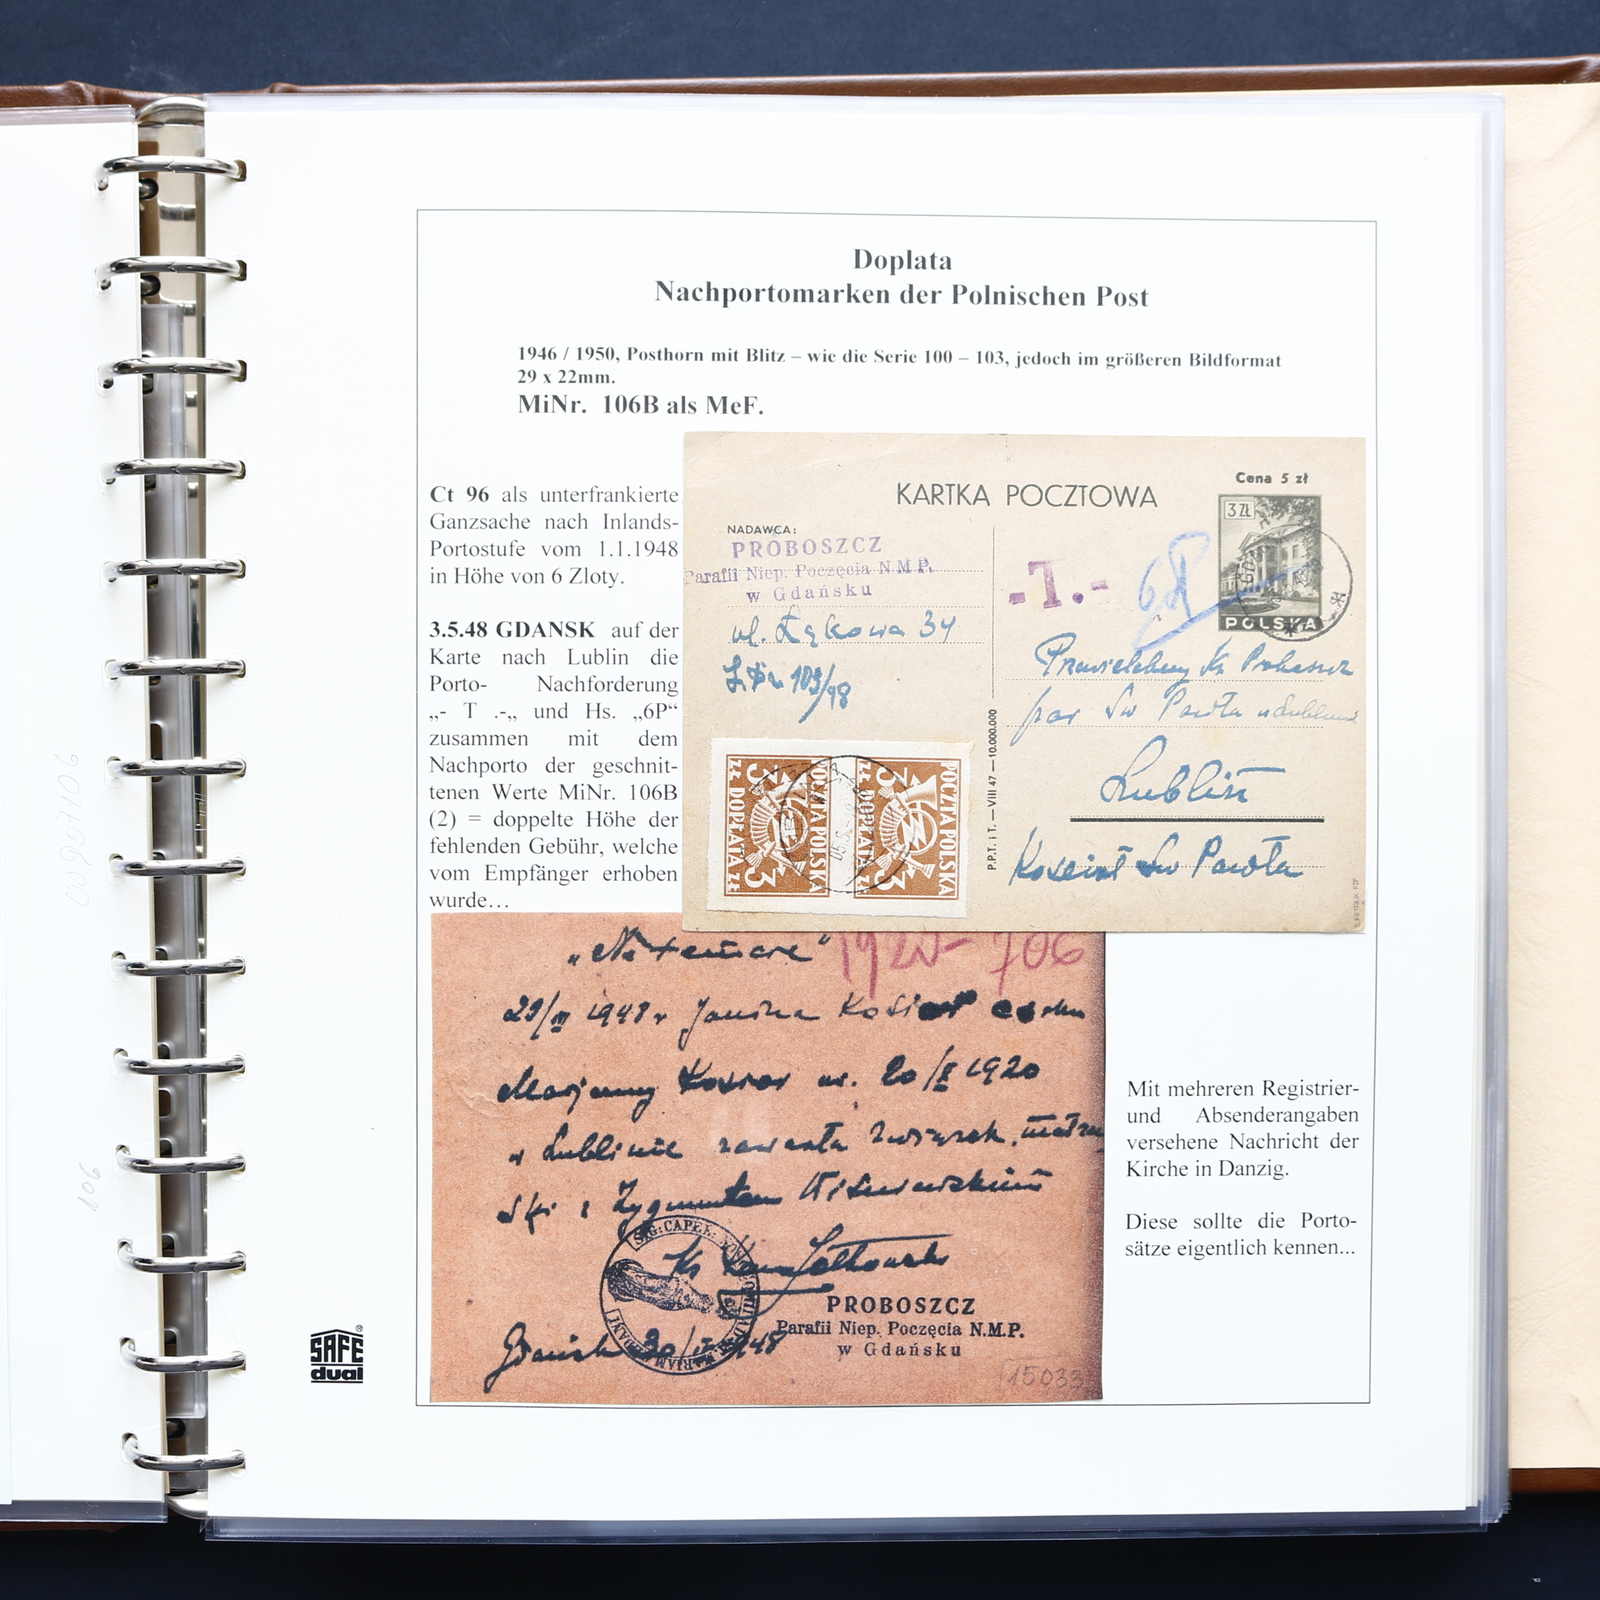 Doplata
Nachportomarken der Polnischen Post
1946 / 1950, Posthorn mit Blitz – wie die Serie 100 – 103, jedoch im größeren Bildformat
29 x 22mm.
MiNr. 106B als MeF.
Ct 96 als unterfrankierte
Ganzsache nach Inlands-
Portostufe vom 1.1.1948
in Höhe von 6 Zloty.
3.5.48 GDANSK auf der
Karte nach Lublin die
Porto- Nachforderung
„- T .-„ und Hs. „6P“
zusammen mit dem
Nachporto der geschnit-
tenen Werte MiNr. 106B
(2) = doppelte Höhe der
fehlenden Gebühr, welche
vom Empfänger erhoben
wurde…
KARTKA POCZTOWA
Cena 5 zł
3 ZŁ
POLSKA
NADAWCA:
PROBOSZCZ
Parafii Niep. Poczęcia N.M.P.
w Gdańsku
ul. Łąkowa 34
103/48
-T.-
6P
par Św Pawła
Lublin
Kościół Św Pawła
P.P.T. i T. — VIII 47 — 10.000.000
POCZTA POLSKA
3
DOPŁATA
ZŁ
POCZTA POLSKA
3
DOPŁATA
ZŁ
1920 - 706
„Ne temere“
1948 r Janina Kosior
Marjanny Kosior ur. 20/X 1920
w Lublinie zawarła związek małżeń
ski z Zygmuntem Wiśniewskim
PROBOSZCZ
Parafii Niep. Poczęcia N.M.P.
w Gdańsku
Gdańsk 30/IV 1948
15033
Mit mehreren Registrier-
und Absenderangaben
versehene Nachricht der
Kirche in Danzig.
Diese sollte die Porto-
sätze eigentlich kennen...
SAFE®
dual
106